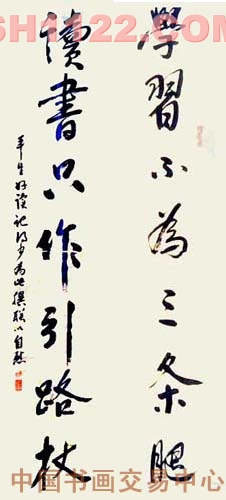 SH1122.COM
學習不為三条腿
讀書只作引路杖
平生好读记得少為此撰联以自慰
中国书画交易中心